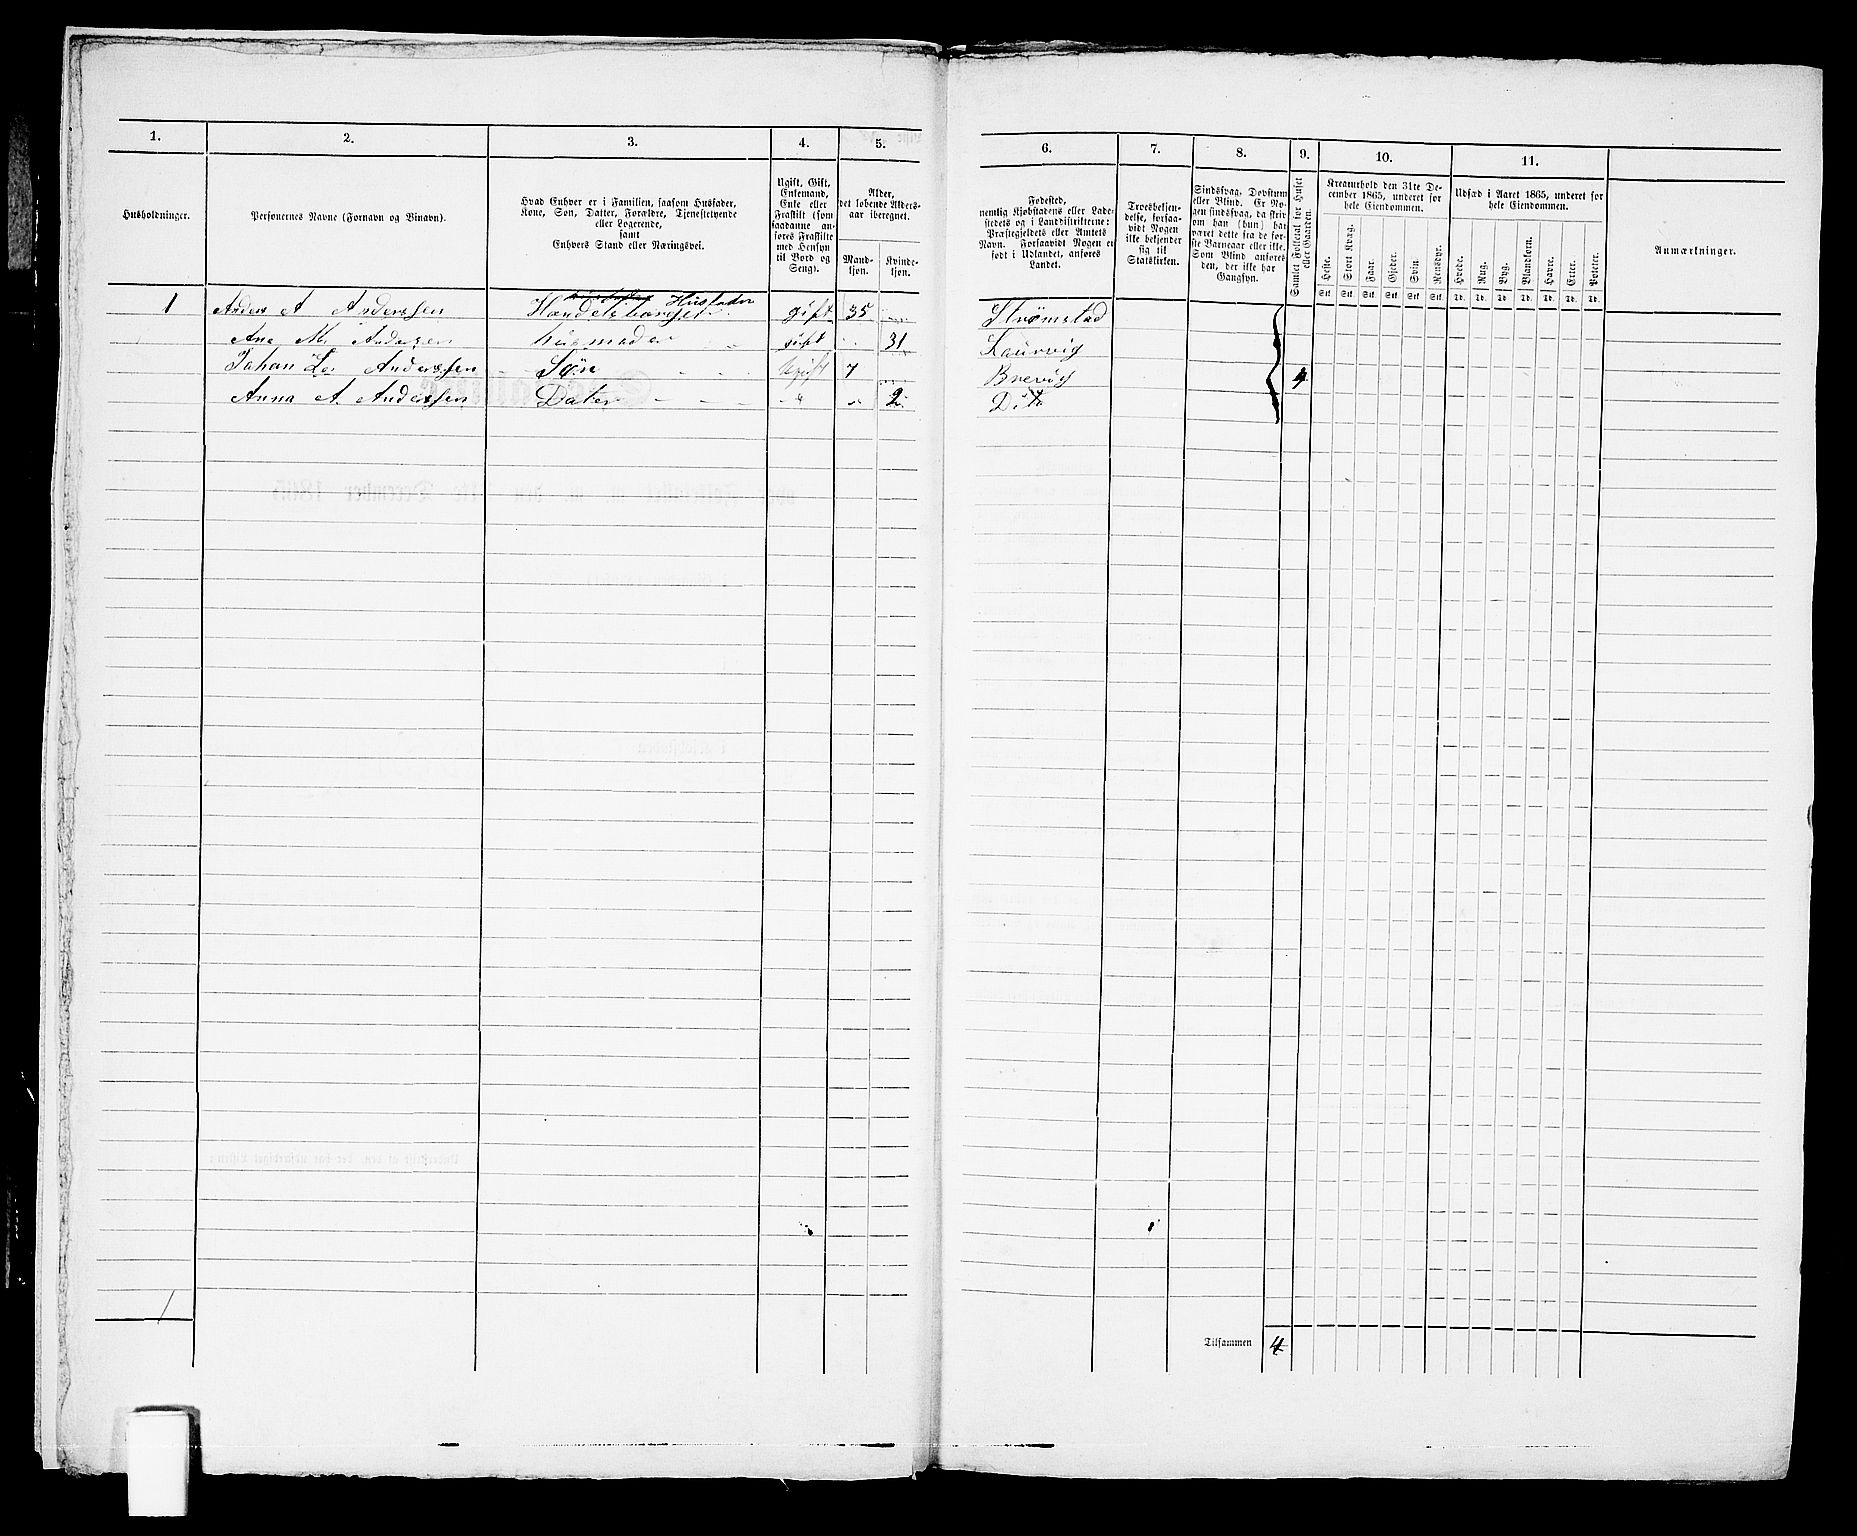 1. 2. 3. 4. 5. 6. 7. 8. 9. 10. 11.
Husholdninger.
Personernes Navne (Fornavn og Binavn).
Hvad Enhver er i Familien, saasom Husfader,
Kone, Søn, Datter, Forældre, Tjenestetyende
eller Logerende,
samt
Enhvers Stand eller Næringsvei.
Ugift, Gift,
Enkemand,
Enke eller
Fraskilt (som
saadanne an-
føres Fraskilte
med Hensyn
til Bord og
Seng).
Alder,
det løbende Alders-
aar iberegnet.
Mand-
kjøn.
Kvinde-
kjøn.
Fødested,
nemlig Kjøbstadens eller Lade-
stedets og i Landdistrikterne:
Præstegjeldets eller Amtets
Navn. Forsaavidt Nogen er
født i Udlandet, anføres
Landet.
Troesbekjen-
delse, forsaa-
vidt Nogen
ikke bekjender
sig til
Statskirken.
Sindssvag, Døvstum
eller Blind. Er No-
gen sindssvag, da skriv
om han (hun) har
været dette fra de før-
ste Barneaar eller ikke.
Som Blind anføres
den, der ikke har
Gangsyn.
Samlet Folketal for Huset
eller Gaarden.
Kreaturhold den 31te De-
cember 1865, underet for
hele Eiendommen.
Heste. Stort Kvæg. Faar. Gjeder. Svin. Rensdyr.
Stk. Stk. Stk. Stk. Stk. Stk.
Udsæd i Aaret 1865, underet for
hele Eiendommen.
Hvede. Rug. Byg. Blandkorn. Havre. Erter. Poteter.
Td. Td. Td. Td. Td. Td. Td.
Anmærkninger.
Husfader
1 Anders A Anderssen gift 35 Strømstad
Ane M. Andersen husmoder gift 31 Laurvig
Johan L. Anderssen Søn Ugift 7 Brevig 4
Anna A. Anderssen Dater 2 Dito
Tilsammen 4